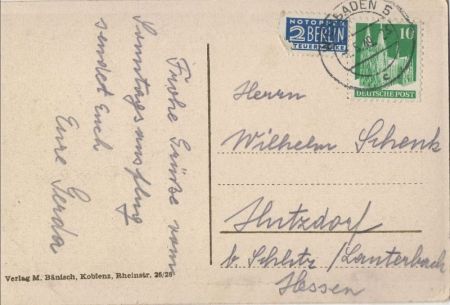 Frohe Grüße vom
Sonntagsausflug
sendet Euch
Eure Gerda
Verlag M. Bänisch, Koblenz, Rheinstr. 26/28
NOTOPFER
2 BERLIN
STEUERMARKE
BADEN 5
c
10
DEUTSCHE POST
Herrn
Wilhelm Schenk
Hutzdorf
b. Schlitz/Lauterbach
Hessen